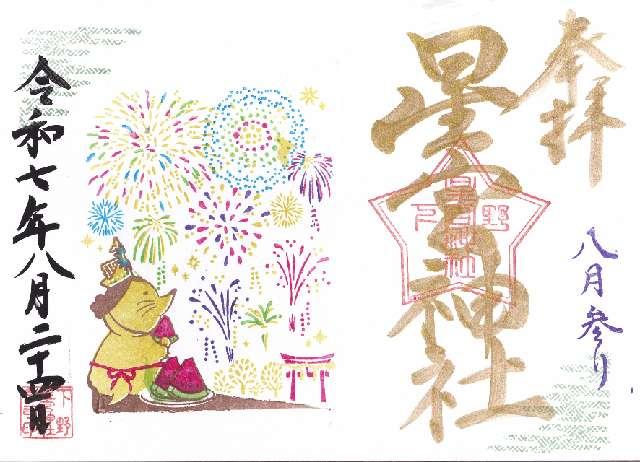 奉拝
八月参り
星宮神社
下野
星宮神社
令和七年八月二十四日